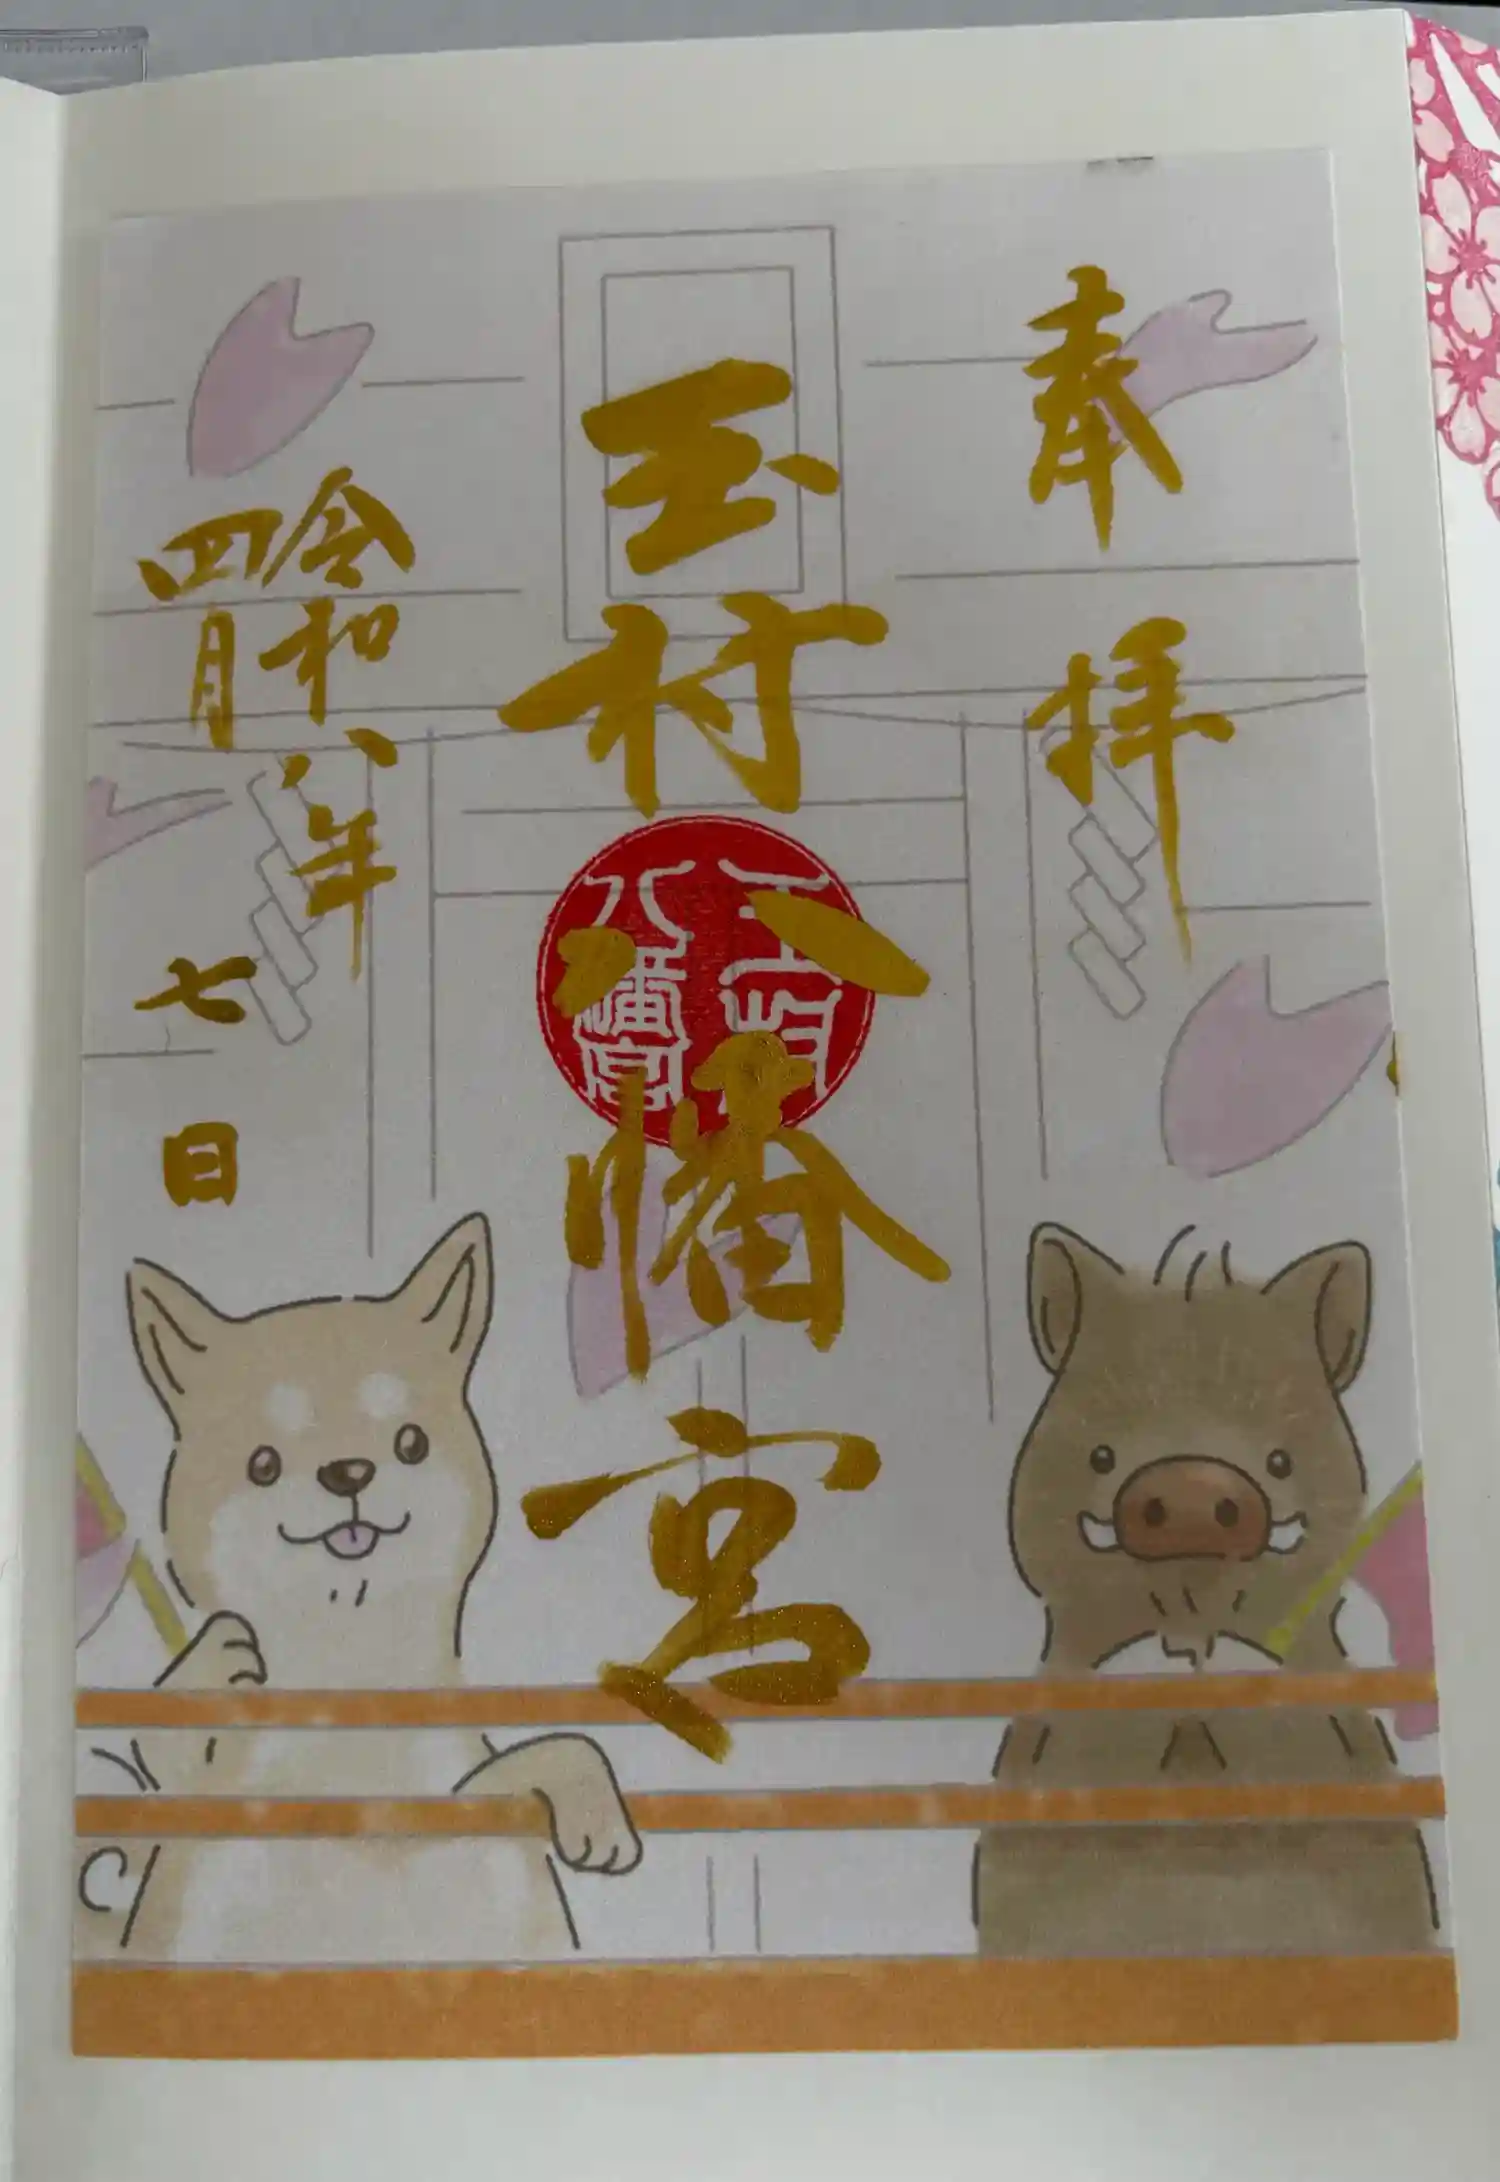 奉拝
玉村八幡宮
玉村
八幡宮
令和八年
四月七日